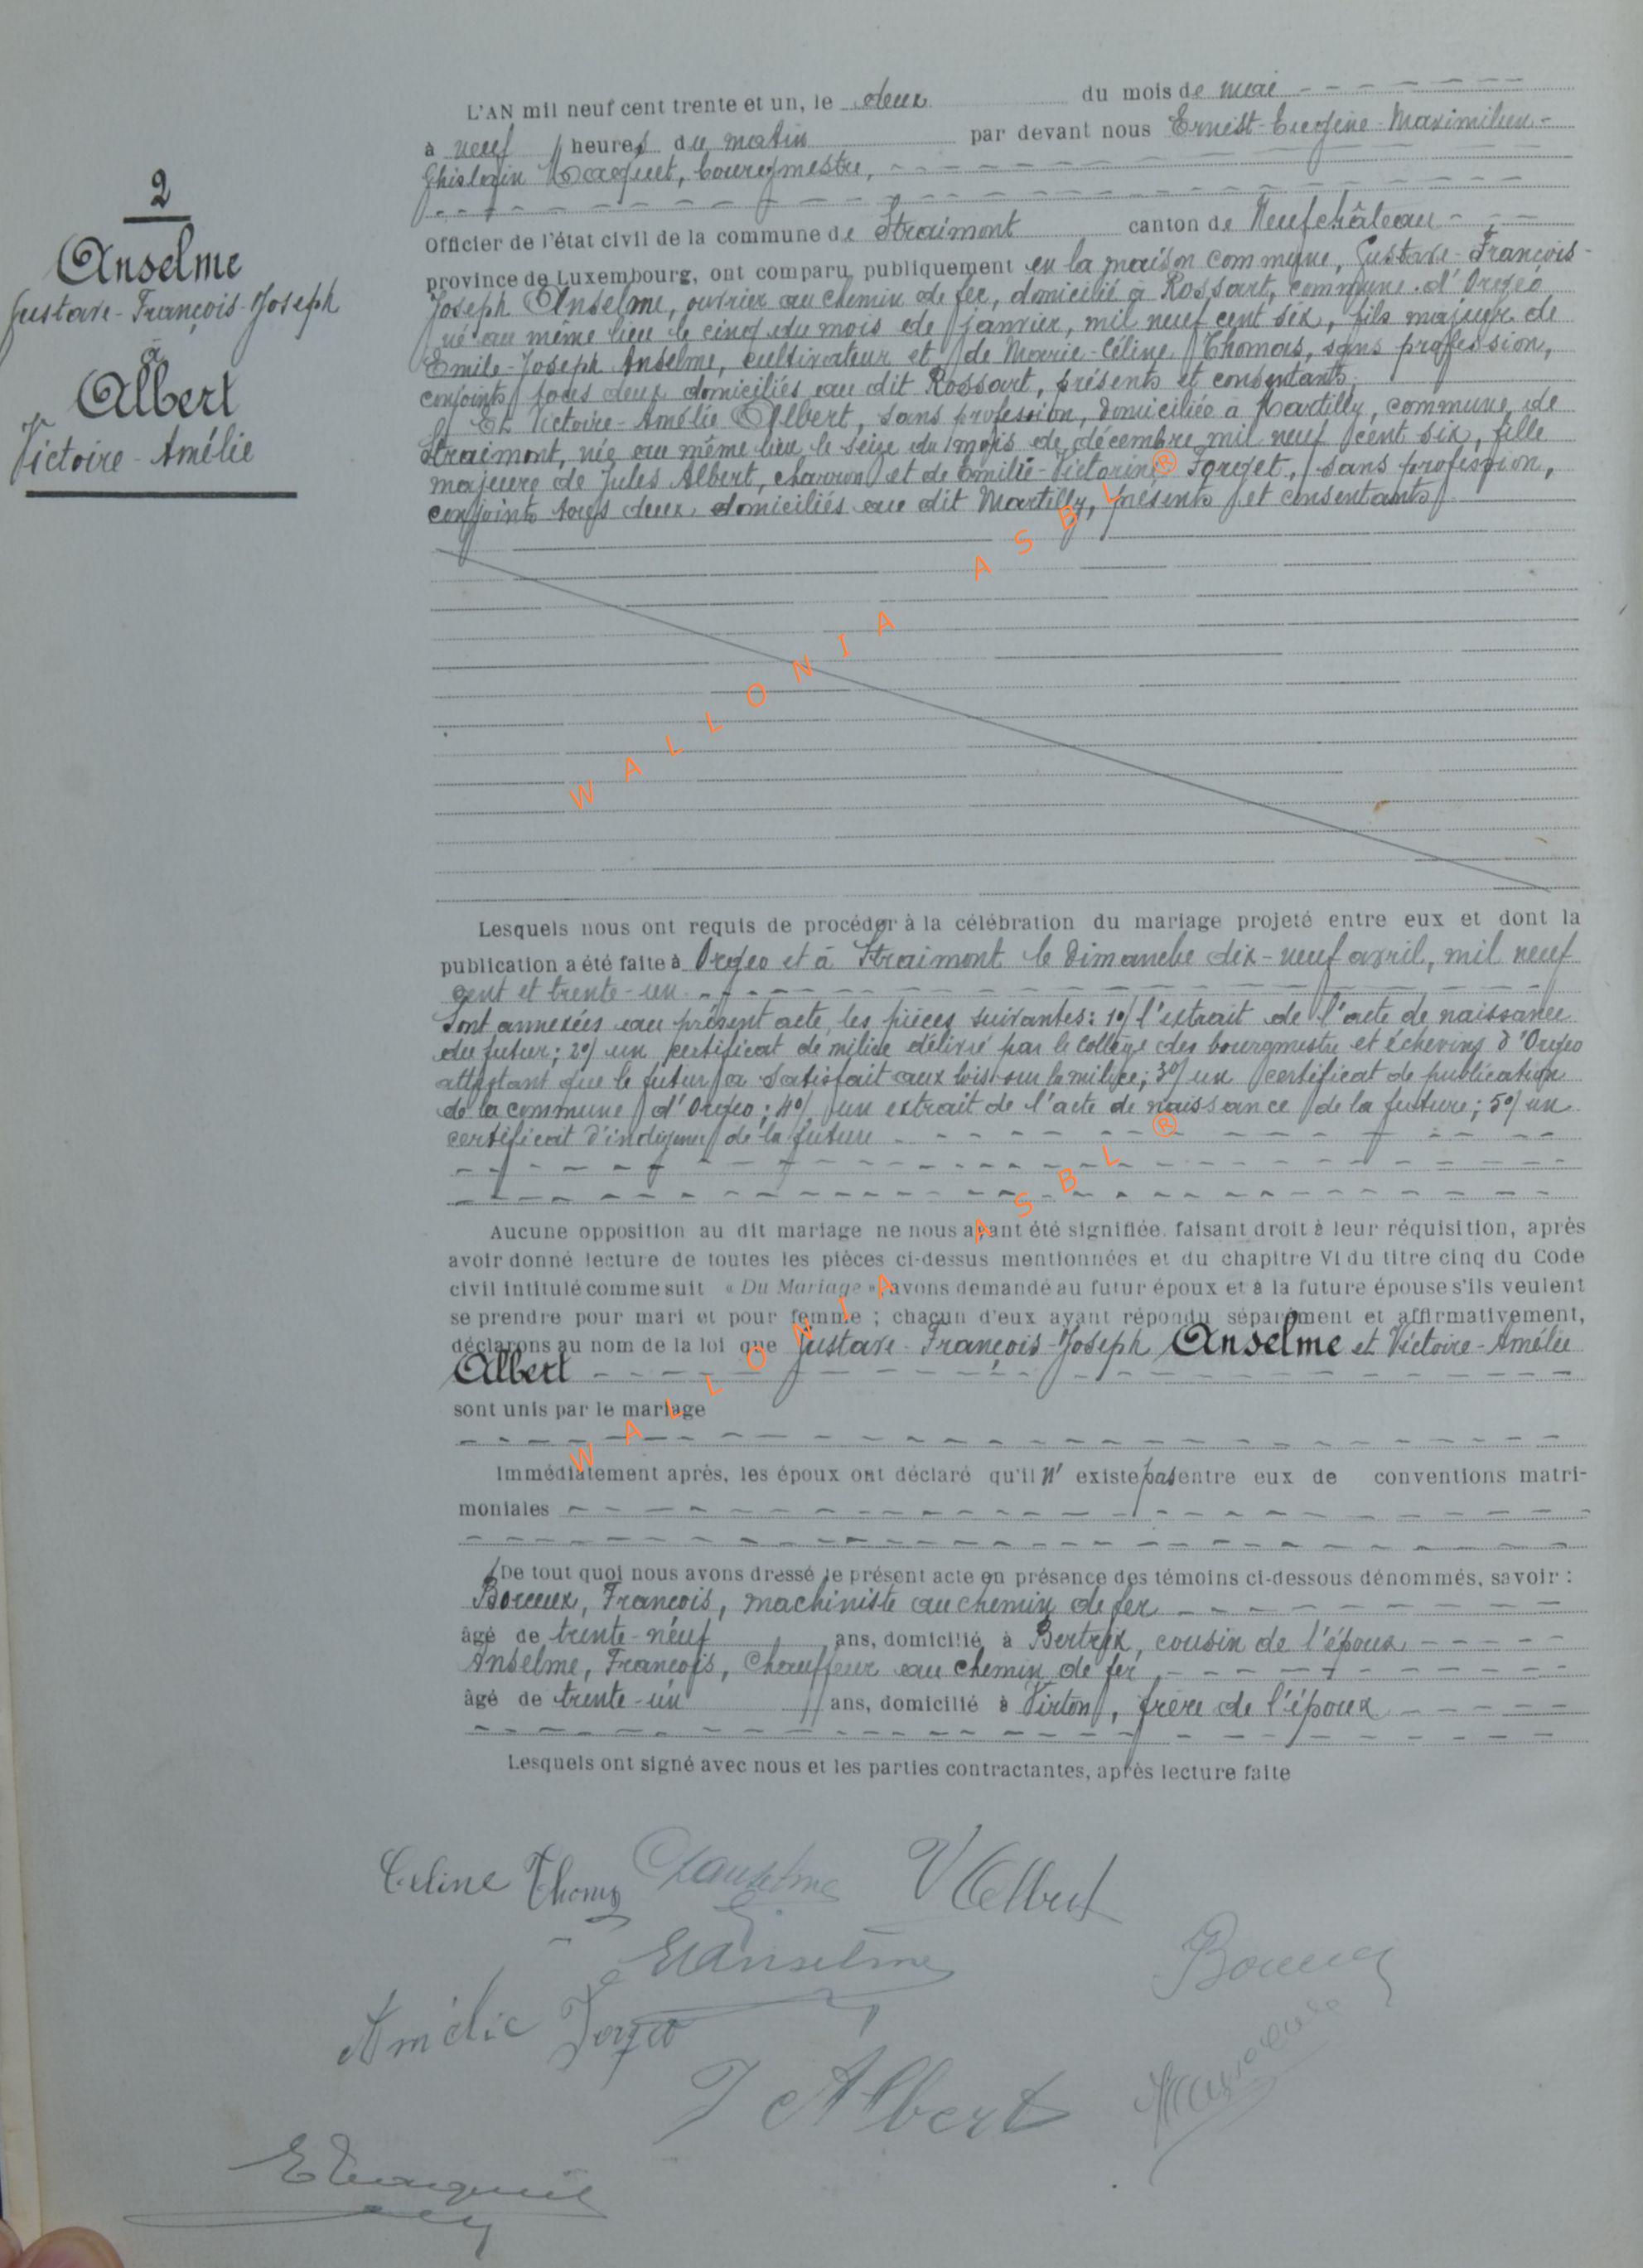 2
Anselme
Gustave-François-Joseph
à
Albert
Victoire-Amélie
L'AN mil neuf cent trente et un, le deux du mois de mai
à neuf heures du matin par devant nous Ernest-Eugène-Maximilien-
Ghislain Macquet, bourgmestre,
Officier de l'état civil de la commune de Straimont canton de Neufchâteau
province de Luxembourg, ont comparu publiquement en la maison commune, Gustave-François-
Joseph Anselme, ouvrier au chemin de fer, domicilié à Rossart, commune d'Orgeo
né au même lieu le cinq du mois de janvier, mil neuf cent six, fils majeur de
Emile-Joseph Anselme, cultivateur et de Marie-Céline Thomas, sans profession,
conjoints tous deux domiciliés au dit Rossart, présents et consentants,
Et Victoire-Amélie Albert, sans profession, domiciliée à Martilly, commune de
Straimont, née au même lieu le seize du mois de décembre mil neuf cent six, fille
majeure de Jules Albert, charron et de Emilie-Victorine Forget, sans profession,
conjoints tous deux domiciliés au dit Martilly, présents et consentants
Lesquels nous ont requis de procéder à la célébration du mariage projeté entre eux et dont la
publication a été faite à Orgeo et à Straimont le Dimanche dix-neuf avril, mil neuf
cent et trente-un
Sont annexées au présent acte, les pièces suivantes: 1°/ l'extrait de l'acte de naissance
du futur; 2°/ un certificat de milice délivré par le Collège des bourgmestre et échevins d'Orgeo
attestant que le futur a satisfait aux lois sur la milice; 3°/ un certificat de publication
de la commune d'Orgeo; 4°/ un extrait de l'acte de naissance de la future; 5°/ un
certificat d'indigence de la future
Aucune opposition au dit mariage ne nous ayant été signifiée, faisant droit à leur réquisition, après
avoir donné lecture de toutes les pièces ci-dessus mentionnées et du chapitre VI du titre cinq du Code
civil intitulé comme suit « Du Mariage » avons demandé au futur époux et à la future épouse s'ils veulent
se prendre pour mari et pour femme ; chacun d'eux ayant répondu séparément et affirmativement,
déclarons au nom de la loi que Gustave-François-Joseph Anselme et Victoire-Amélie
Albert
sont unis par le mariage
Immédiatement après, les époux ont déclaré qu'il n'existe pas entre eux de conventions matri-
moniales
De tout quoi nous avons dressé le présent acte en présence des témoins ci-dessous dénommés, savoir :
Boreux, François, machiniste au chemin de fer
âgé de trente-neuf ans, domicilié à Bertrix, cousin de l'époux
Anselme, François, Chauffeur au chemin de fer,
âgé de trente-un ans, domicilié à Virton, frère de l'époux
Lesquels ont signé avec nous et les parties contractantes, après lecture faite
Céline Thomas Anselme V Albert
Anselme Boreux
Amélie Forget
J Albert
WALLONIA ASBL ®
WALLONIA ASBL ®